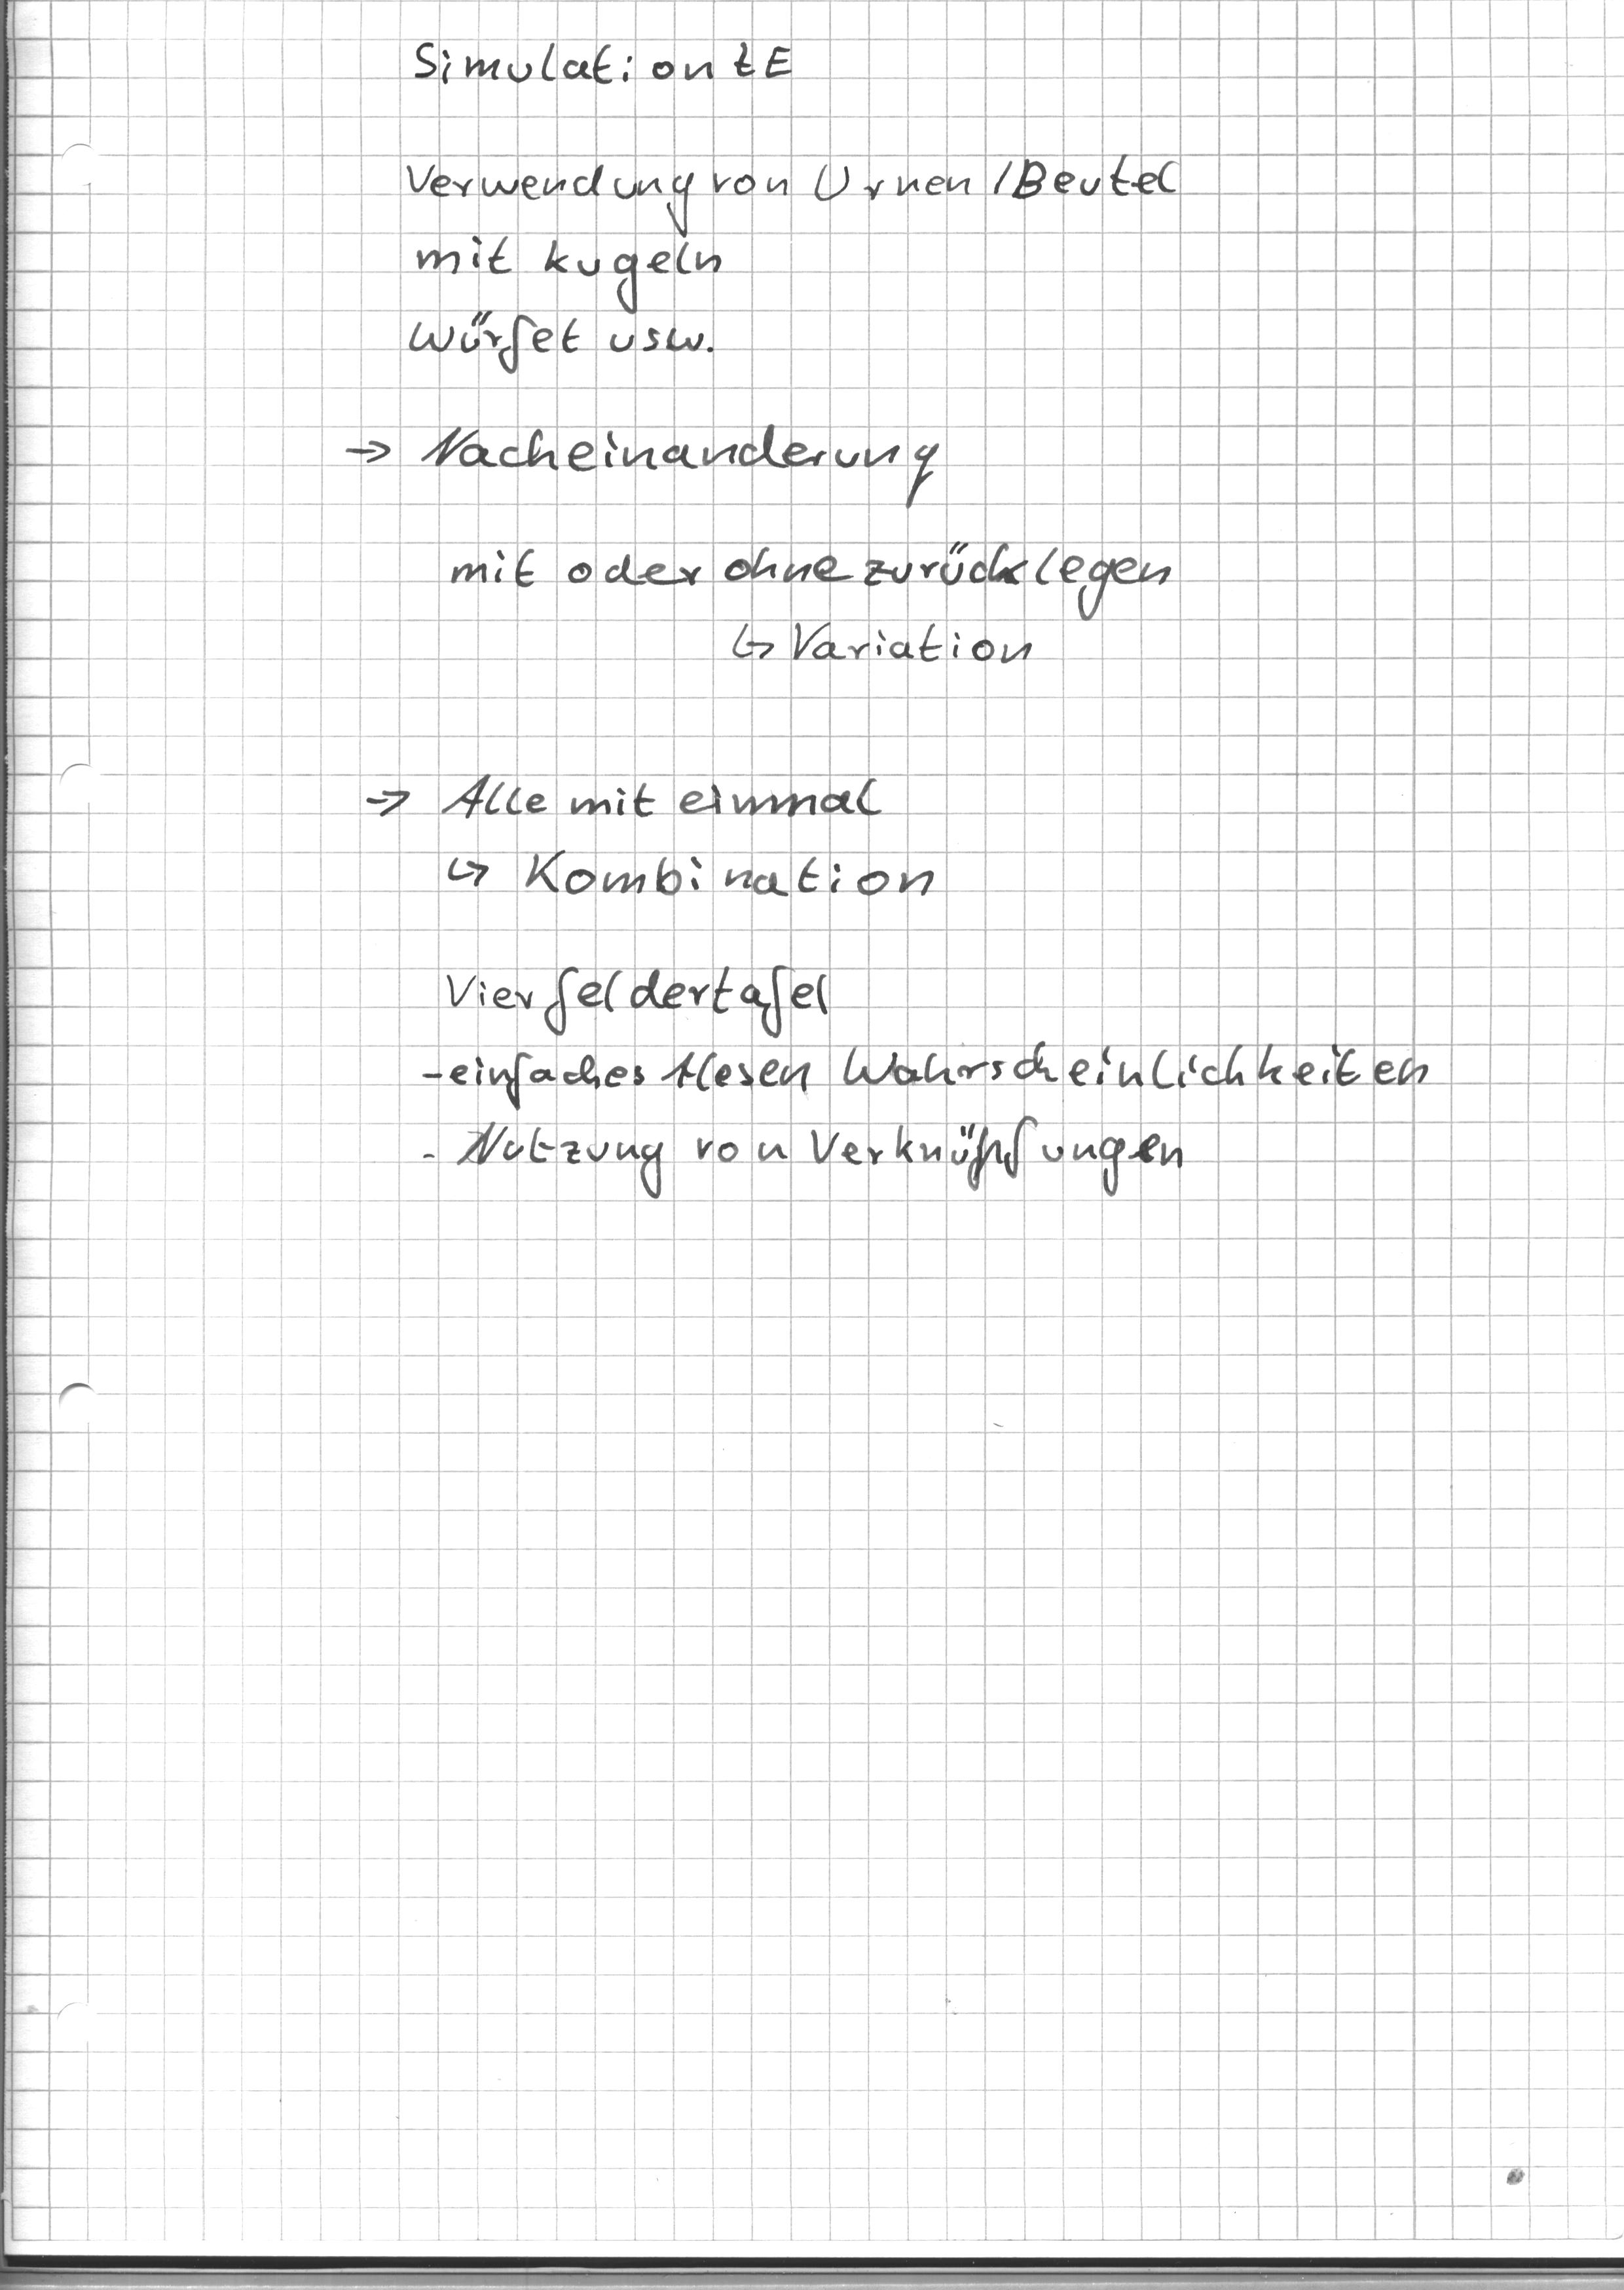 Simulation ZE
Verwendung von Urnen / Beutel
mit kugeln
Würfel usw.
→ Nacheinanderung
mit oder ohne zurücklegen
↳ Variation
→ Alle mit einmal
↳ Kombination
Vierfeldertafel
- einfaches Wahrscheinlichkeiten
- Nutzung von Verknüpfungen